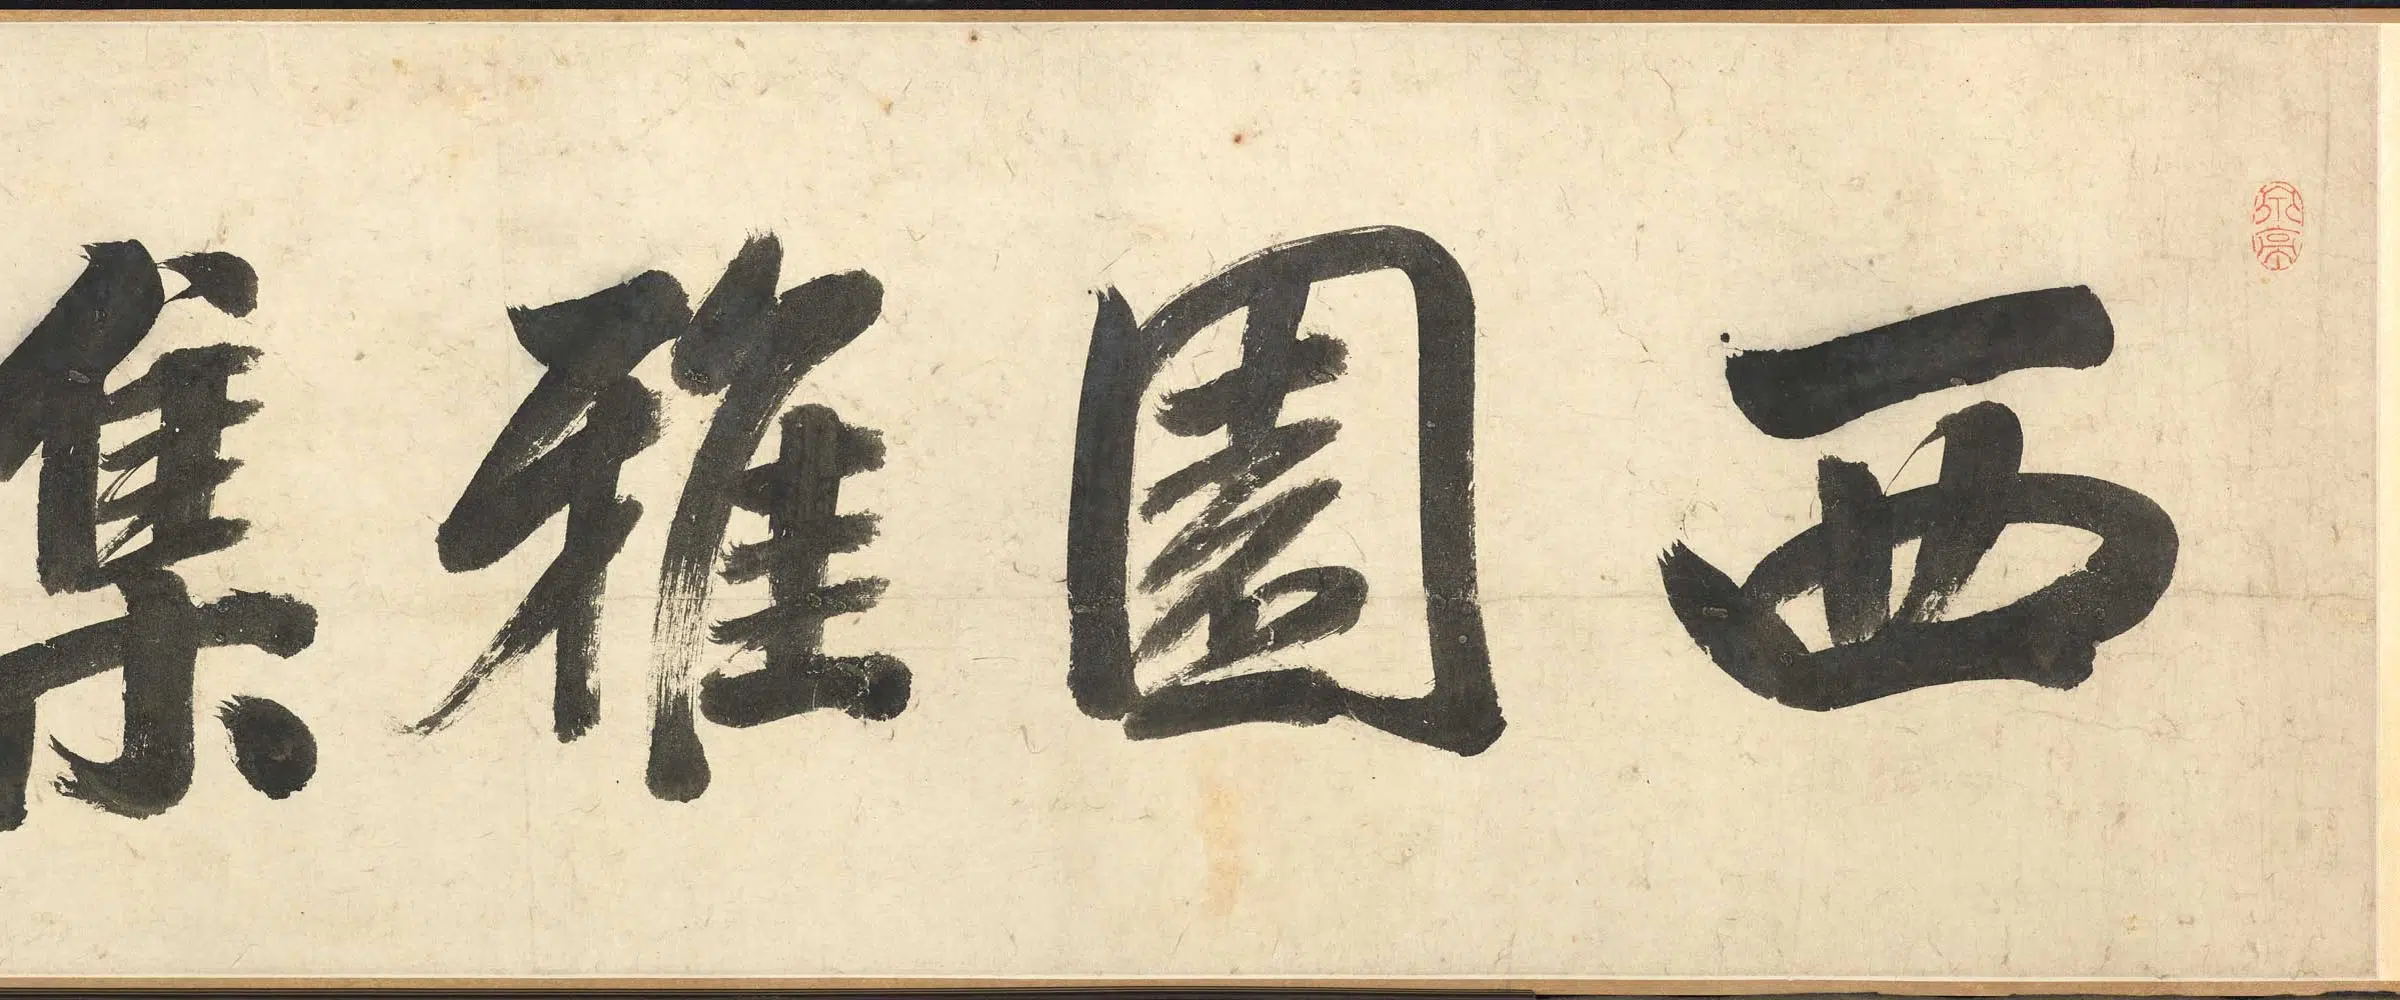 西園雅集